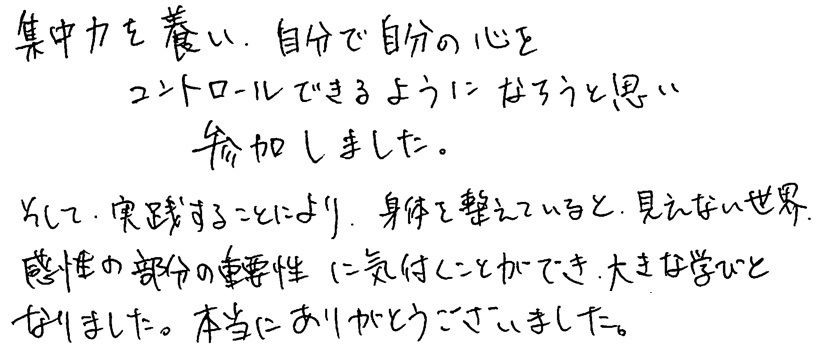 集中力を養い、自分で自分の心を
コントロールできるようになろうと思い
参加しました。
そして、実践することにより、身体を整えていると、見えない世界、
感性の部分の重要性に気付くことができ、大きな学びと
なりました。本当にありがとうございました。